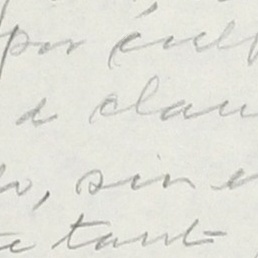 por cul
a clau
o, sin e
e tant